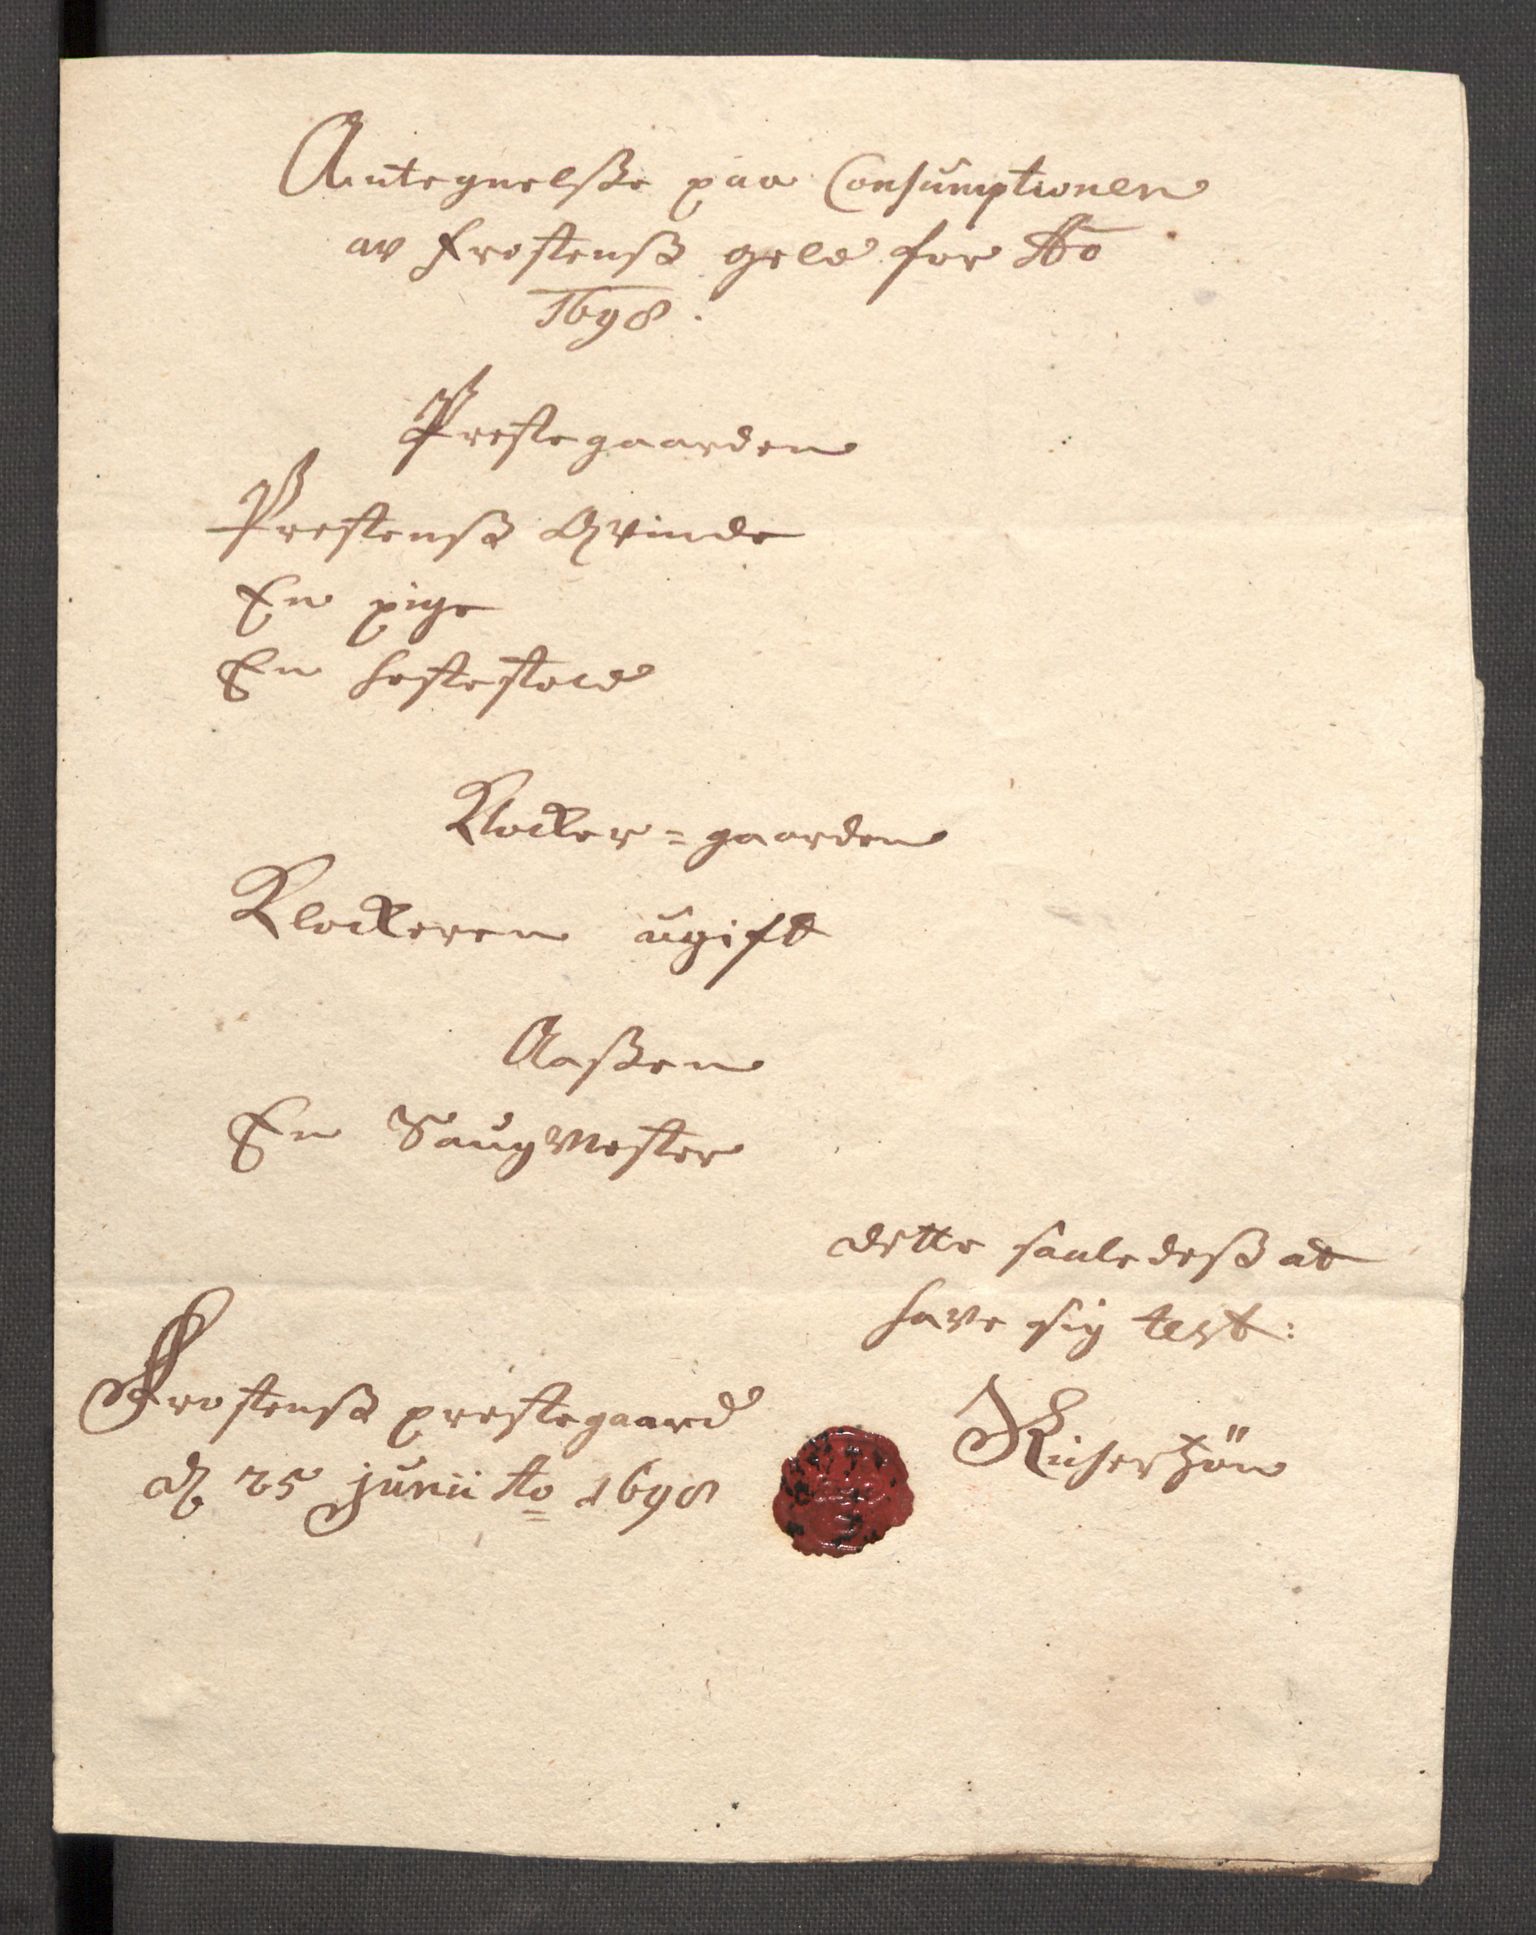 Antegnelsße paa Consumptionen
av Frostenß geld for Ao
1698.
Prestegaarden
Prestenß Qvinde
En pige
En hestestald
Klocker=gaarden
Klockeren ugift
Aaßen
En Saugmester
dette saaledeß at
have sig test:
Frostenß prestegaard
d 25 junii Ao 1698